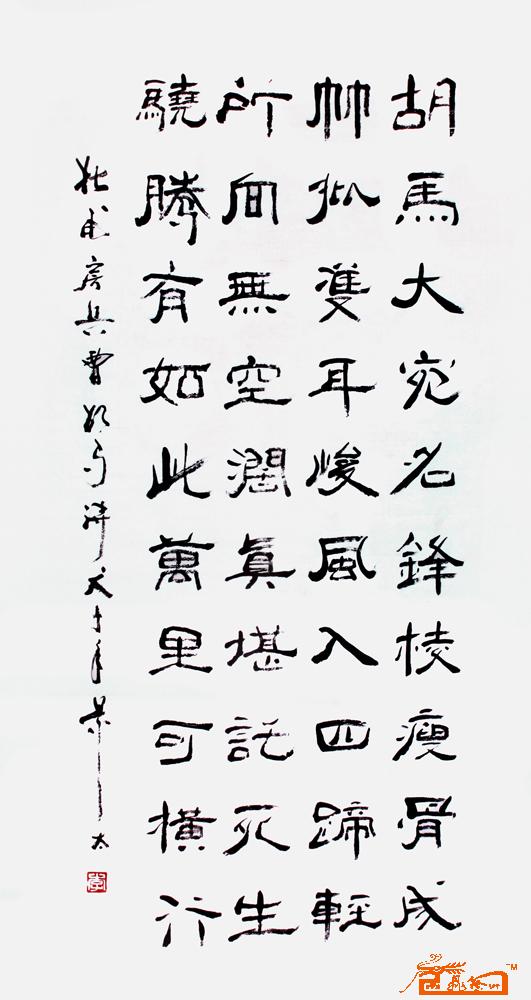 胡馬大宛名鋒棱瘦骨成
竹批雙耳峻風入四蹄輕
所向無空濶眞堪託死生
驍騰有如此萬里可橫行
杜甫房兵曹胡馬詩